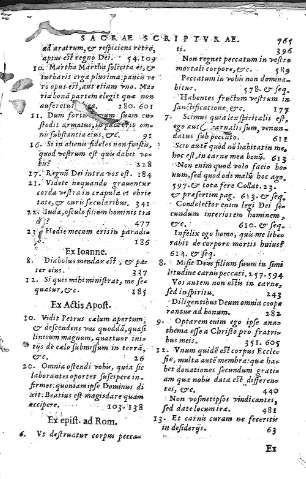 SACRAE SCRIPTVRAE. 765
ad aratrum, & respiciens retrò,
aptus est regno Dei. 54.109
10. Martha Martha solicita es, &
turbaris erga plurima: paucis ve
rò opus est, aut etiam vno. Ma-
ria bonã partem elegit quæ non
auferetur 180. 601
11. Dum fortis suum cu-
stodit armatus, in sunt om-
nia substantia eius, &c. 91
16. Si in alieno fideles non fuistis,
quod vestrum est quis dabit vo-
bis? 128
17. Regnũ Dei intra vos est. 184
21. Videte nequando grauentur
corda vestra in crapula et ebrie
tate, & curis sæcularibus. 341
22. Iuda, osculo filium hominis tra
dis? 277
23. Hodie mecum eris in paradiso
186
Ex Ioanne.
8. Diabolus mendax est, & pa-
ter eius. 337
12. Si quis mihi ministrat, me se-
quatur, &c. 185
Ex Actis Apost.
10. Vidit Petrus cælum apertum,
& descendens vas quoddã, quasi
linteum magnum, quatuor init-
ijs de cælo submissum in terrã,
&c. 26
20. Omnia ostendi vobis, quia sic
laborantes oportet suscipere in-
firmos: quoniam ipse Dominus di
xit: Beatius est magis dare quàm
accipere. 103.138
Ex epist. ad Rom.
6. Vt destruatur corpus pecca-
ti. 396
Non regnet peccatum in vestro
mortali corpore, &c. 189
Peccatum in vobis non domina-
bitur. 578. & seq.
Habentes fructum vestrum in
sanctificatione, &c. 177
7. Scimus quia lex spiritalis est,
ego autẽ carnalis sum, venun-
datus sub peccato. 612
Scio autẽ quòd nõ habitat in me,
hoc est, in carne mea bonũ. 613
Non enim quod volo facio bo-
num, sed quod odi malũ hoc ago.
597. & tota ferè Collat. 23.
& præsertim pag. 613. & seq.
Condelector enim legi Dei se-
cundum interiorem hominem,
&c. 610. & seq.
Infelix ego homo, quis me libe-
rabit de corpore mortis huius?
614. & seq.
8. Misit Deus filium suum in simi
litudine carnis peccati. 257.594
Vos autem non estis in carne,
sed in spiritu. 243
Diligentibus Deum omnia coope
rantur ad bonum. 282
9. Optarem enim ego ipse ana-
thema esse à Christo pro fratri-
bus meis. 351.605
12. Vnum quidẽ est corpus Eccle-
siæ, multa autẽ membra: quæ ha-
bet donationes secundum gratiã
quæ nobis data est differen-
tes, &c. 440
Non vosmetipsos vindicantes,
sed date locum iræ. 481
13. Et carnis curam ne feceritis
in desiderijs. 63
Ex